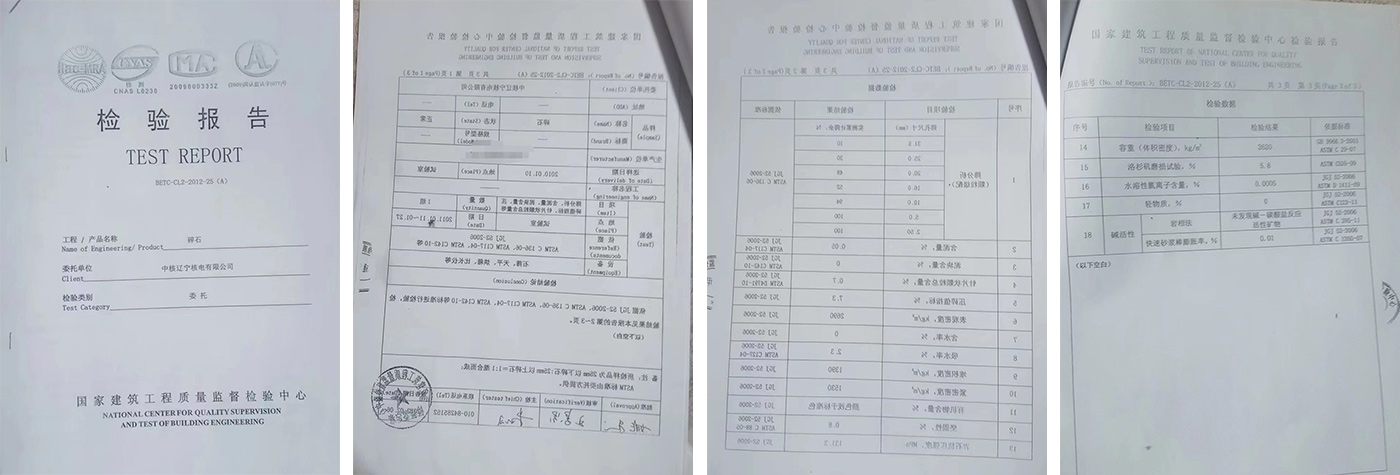 ilac-MRA
CNAS
检测
CNAS L0230
MA
2009000333Z
检验报告
TEST REPORT
BETC-CL2-2012-25 (A)
工程 / 产品名称 碎石
Name of Engineering/ Product
委托单位 中核辽宁核电有限公司
Client
检验类别 委 托
Test Category
国家建筑工程质量监督检验中心
NATIONAL CENTER FOR QUALITY SUPERVISION
AND TEST OF BUILDING ENGINEERING
国家建筑工程质量监督检验中心检验报告
TEST REPORT OF NATIONAL CENTER FOR QUALITY
SUPERVISION AND TEST OF BUILDING ENGINEERING
报告编号 (No. of Report): BETC-CL2-2012-25 (A) 共 3 页 第 1 页(Page 1 of 3)
委托单位 (Client) 中核辽宁核电有限公司
地址 (ADD) —— 电话 (Tel) ——
样品 (Sample) 名称 (Name) 碎石 状态 (State) 正常
商标 (Brand) —— 规格型号 (Model)
生产单位 (Manufacturer)
送样日期 (Date of delivery) 2010.01.10 地点 (Place) 试验室
工程名称 (Name of engineering) ——
检验 (Test) 项目 (Item) 数量 (Quantity) 1 组
地点 (Place) 试验室 日期 (Date)
依据 (Reference documents) JGJ 52-2006
ASTM C 136-06、ASTM C117-04、ASTM C142-10 等
设备 (Equipment) 石筛、天平、烘箱、比长仪等
检验结论 (Conclusion)
依据 JGJ 52-2006、ASTM C 136-06、ASTM C117-04、ASTM C142-10 等标准进行检验，检
验结果见本报告的第 2~3 页。
(以下空白)
ASTM 标准由委托方提供。
批准(Approval) 审核(Verification) 主检 (Chief tester) 联系电话(Tel)
010-84285152
国家建筑工程质量监督检验中心检验报告
TEST REPORT OF NATIONAL CENTER FOR QUALITY
SUPERVISION AND TEST OF BUILDING ENGINEERING
报告编号 (No. of Report): BETC-CL2-2012-25 (A) 共 3 页 第 2 页(Page 2 of 3)
检验数据
序号 检验项目 检验结果 依据标准
1 筛分析 (颗粒级配) 筛孔尺寸 (mm) 实测累计筛余，%
31.5 10
25.0 30
20.0 48
16.0 52
10.0 94
5.0 100
2.50 100
JGJ 52-2006
ASTM C 136-06
2 含泥量，% 0.05 JGJ 52-2006 ASTM C117-04
3 泥块含量，% 0 JGJ 52-2006 ASTM C142-10
4 针片状颗粒总含量，% 0.7 JGJ 52-2006 ASTM D4791-10
5 压碎值指标，% 7.3 JGJ 52-2006
6 表观密度，kg/m³ 2690 JGJ 52-2006
7 含水率，% 0 JGJ 52-2006
8 吸水率，% 2.3 JGJ 52-2006 ASTM C127-04
9 堆密度，kg/m³ 1390 JGJ 52-2006
10 紧密密度，kg/m³ 1530 JGJ 52-2006
11 有机物含量，% 颜色浅于标准色 JGJ 52-2006
12 坚固性，% 0.8 JGJ 52-2006 ASTM C 88-05
13 岩石抗压强度，MPa 131.2 JGJ 52-2006
国家建筑工程质量监督检验中心检验报告
TEST REPORT OF NATIONAL CENTER FOR QUALITY
SUPERVISION AND TEST OF BUILDING ENGINEERING
报告编号 (No. of Report): BETC-CL2-2012-25 (A) 共 3 页 第 3 页(Page 3 of 3)
检验数据
序号 检验项目 检验结果 依据标准
14 容重 (体积密度)，kg/m³ 2620 GB 9966.3-2001 ASTM C 29-07
15 洛杉矶磨损试验，% 5.8
16 水溶性氯离子含量，% 0.0005 JGJ 52-2006
17 轻物质，% 0 JGJ 52-2006
18 碱活性 岩相法 未发现碱—碳酸盐反应活性矿物 JGJ 52-2006
快速砂浆棒膨胀率，% 0.01 JGJ 52-2006
(以下空白)